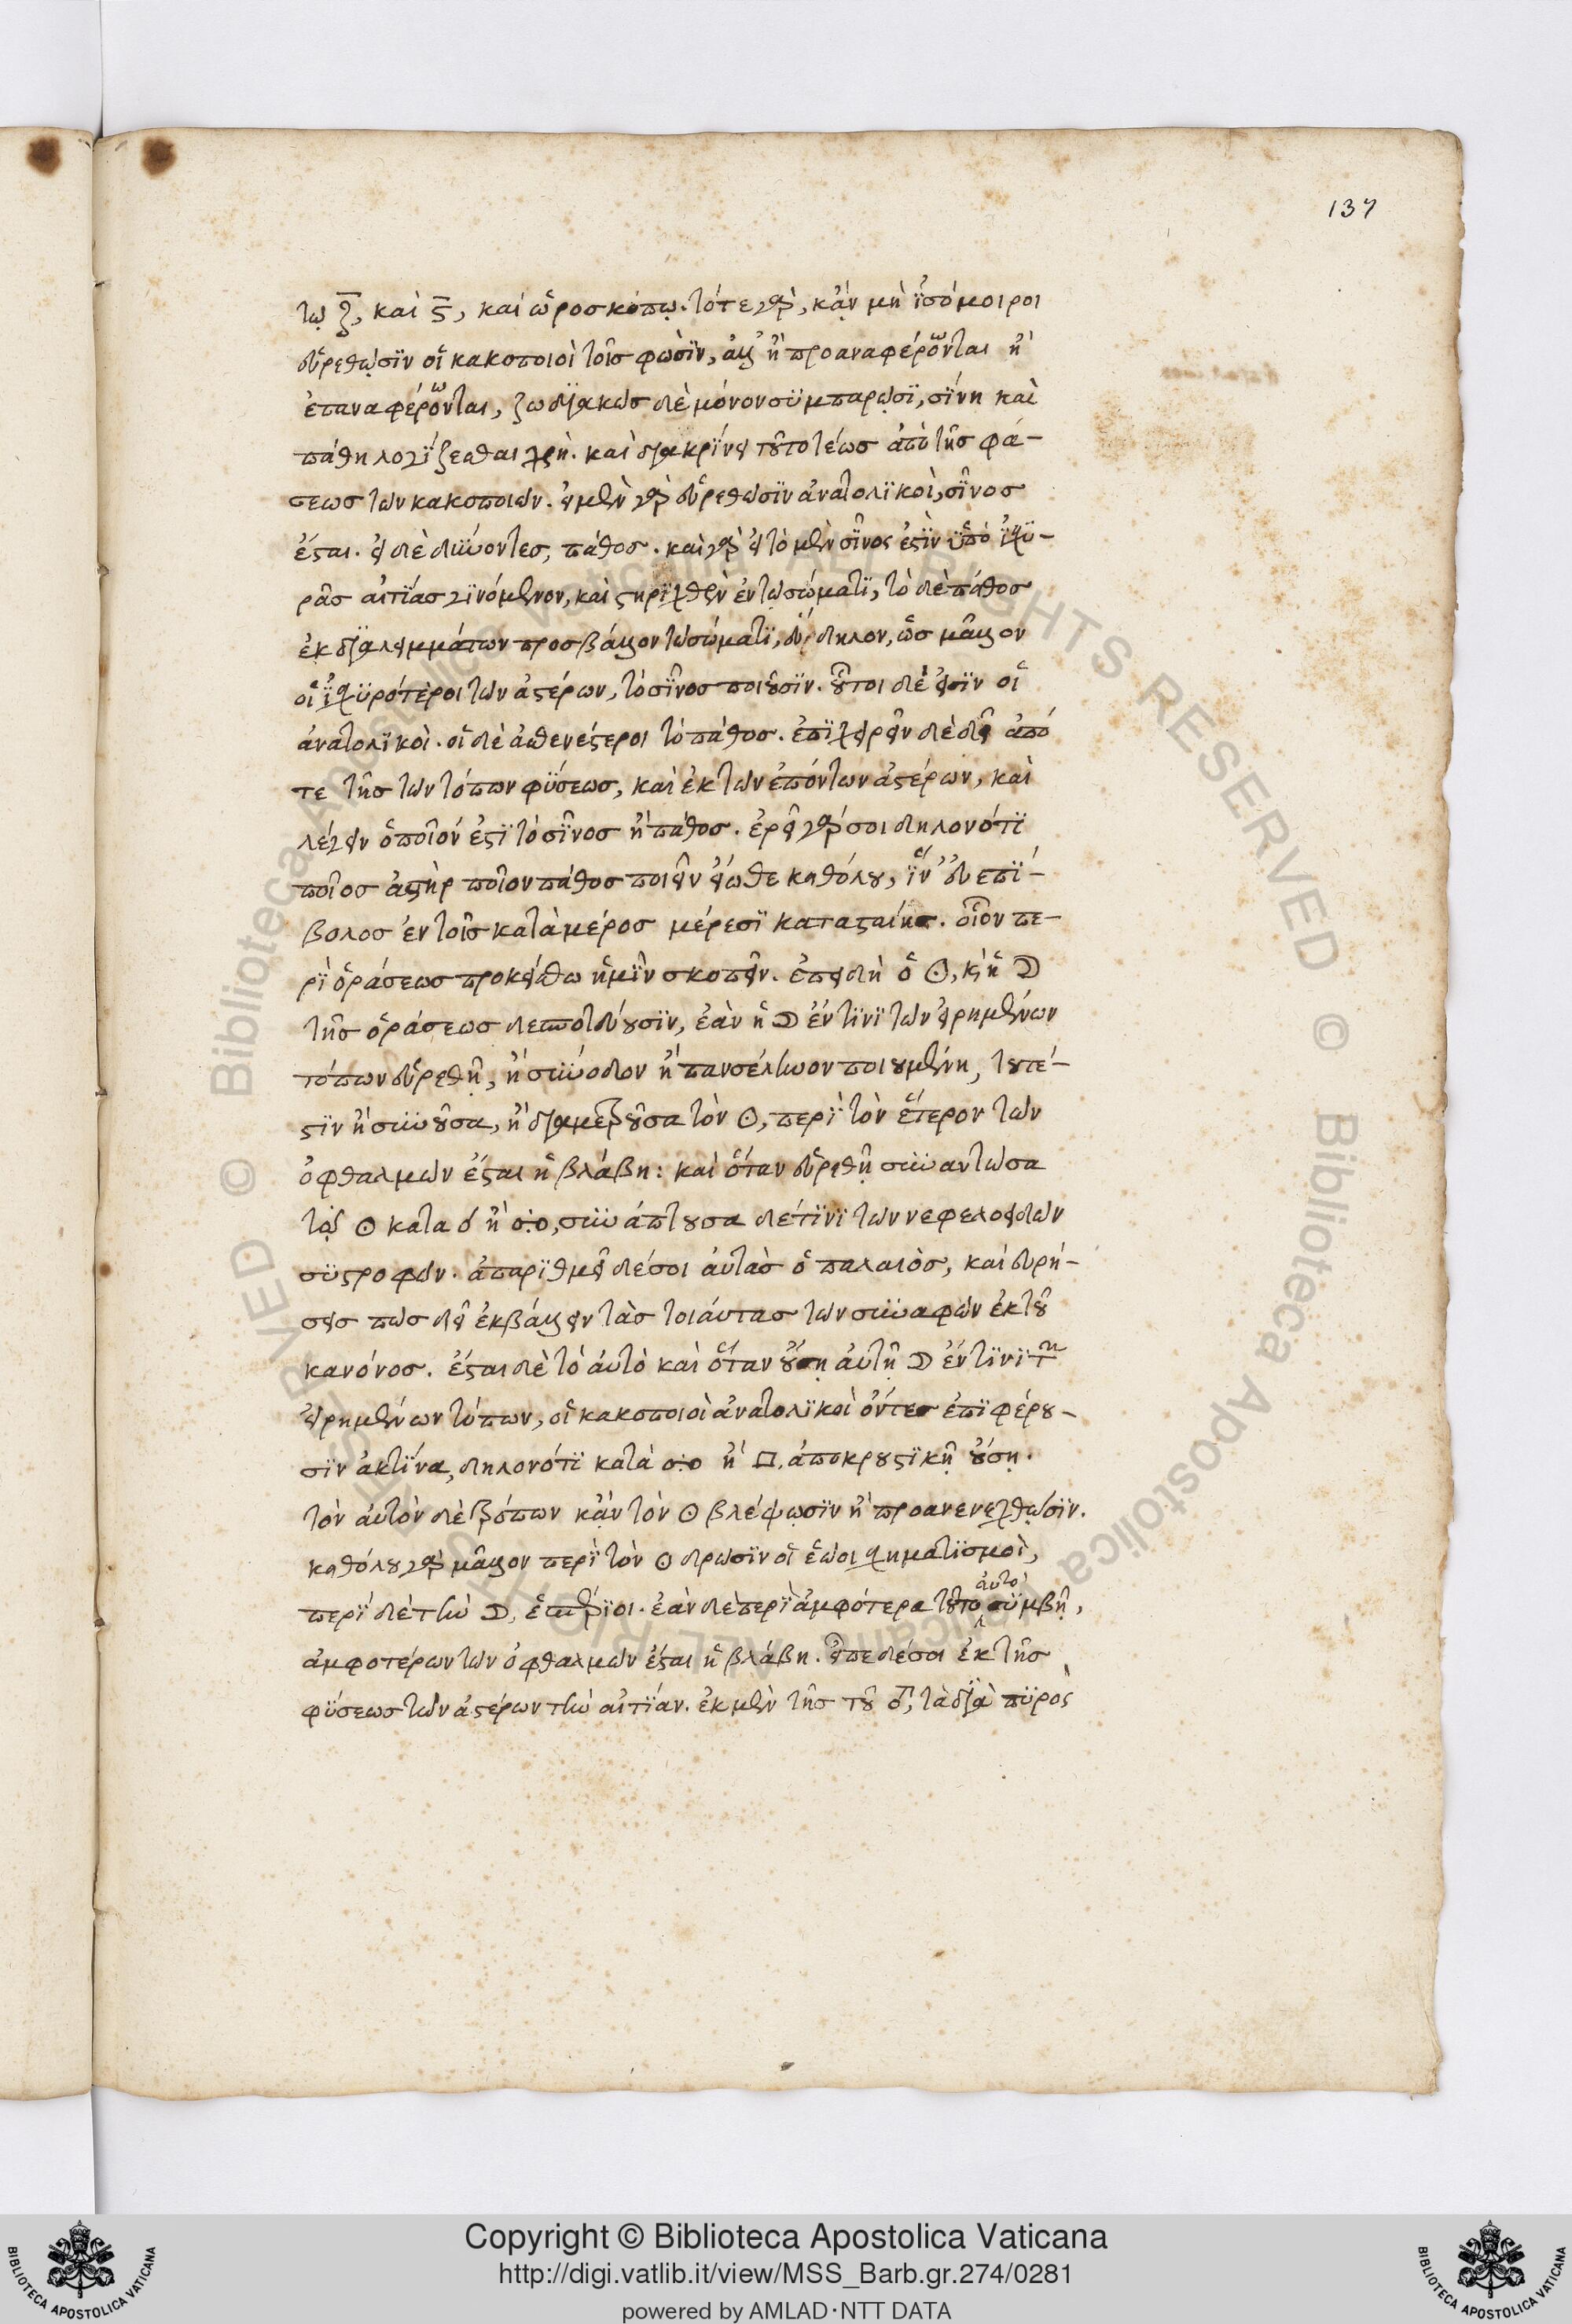 137
τῷ ζ̅, καὶ ϛ̅, καὶ ὡροσκόπῳ. τότε γὰρ, κᾂν μὴ ἰσόμοιροι
εὑρεθῶσιν οἱ κακοποιοὶ τοῖς φωσὶν, ἀλλ' ἢ προαναφέρωνται ἢ
ἐπαναφέρωνται, ζωδιακῶς δὲ μόνον συμπαρῶσι, σίνη καὶ
πάθη λογίζεσθαι χρή. καὶ διακρίνει τοῦτο τέως ἀπὸ τῆς φά-
σεως τῶν κακοποιῶν. εἰ μὲν γὰρ εὑρεθῶσιν ἀνατολικοὶ, σῖνος
ἔσται. εἰ δὲ δύνοντες, πάθος. καὶ γὰρ εἰ τὸ μὲν σῖνος ἐστὶν ὑπὸ ἰσχυ-
ρᾶς αἰτίας γινόμενον, καὶ στηριχθὲν ἐν τῷ σώματι, τὸ δὲ πάθος
ἐκ διαλειμμάτων προσβάλλον τῷ σώματι, εὔδηλον, ὡς μᾶλλον
οἱ ἰσχυρότεροι τῶν ἀστέρων, τὸ σῖνος ποιοῦσιν. οὗτοι δὲ εἰσὶν οἱ
ἀνατολικοὶ. οἱ δὲ ἀσθενέστεροι τὸ πάθος. ἐπιχειρεῖν δὲ δεῖ ἀπό
τε τῆς τῶν τόπων φύσεως, καὶ ἐκ τῶν ἐπόντων ἀστέρων, καὶ
λέγειν ὁποῖόν ἐστι τὸ σῖνος ἢ πάθος. ἐρεῖ γάρ σοι δηλονότι
ποῖος ἀστὴρ ποῖον πάθος ποιεῖν εἴωθε καθόλου, ἵν' εὐεπί-
βολος ἐν τοῖς κατὰ μέρος μέρεσι κατασταίης. οἷον πε-
ρὶ ὁράσεως προκείσθω ἡμῖν σκοπεῖν. ἐπειδὴ ὁ ☉, κὶ ἡ ☽
τῆς ὁράσεως δεσποτεύουσιν, ἐὰν ἡ ☽ ἔν τινι τῶν εἰρημένων
τόπων εὑρεθῇ, ἢ σύνοδον ἢ πανσέληνον ποιουμένη, τουτέ-
στιν ἢ συνοῦσα, ἢ διαμετροῦσα τὸν ☉, περὶ τὸν ἕτερον τῶν
ὀφθαλμῶν ἔσται ἡ βλάβη: καὶ ὅταν εὑρεθῇ συναντῶσα
τῷ ☉ κατὰ ☌ ἢ ☍, συνάπτουσα δέ τινι τῶν νεφελοειδῶν
συστροφῶν. ἀπαριθμεῖ δέ σοι αὐτὰς ὁ παλαιὸς, καὶ εὑρή-
σεις πῶς δεῖ ἐκβάλλειν τὰς τοιαύτας τῶν συναφῶν ἐκ τοῦ
κανόνος. ἔσται δὲ τὸ αὐτὸ καὶ ὅταν οὔσῃ αὐτῇ ☽ ἔν τινι τῶν
εἰρημένων τόπων, οἱ κακοποιοὶ ἀνατολικοὶ ὄντες ἐπιφέρου-
σιν ἀκτίνα, δηλονότι κατὰ ☍ ἢ □, ἀποκρουστικῇ οὔσῃ.
τὸν αὐτὸν δὲ τρόπον κᾂν τὸν ☉ βλέψωσιν ἢ προανενεχθῶσιν.
καθόλου γὰρ μᾶλλον περὶ τὸν ☉ δρῶσιν οἱ ἑῷοι σχηματισμοὶ,
περὶ δὲ τὴν ☽, ἑσπέριοι. ἐὰν δὲ περὶ ἀμφότερα τοῦτο αὐτὸ συμβῇ,
ἀμφοτέρων τῶν ὀφθαλμῶν ἔσται ἡ βλάβη. εἶπε δέ σοι ἐκ τῆς
φύσεως τῶν ἀστέρων τὴν αἰτίαν. ἐκ μὲν τῆς τοῦ ♂, τὰ διὰ πυρὸς
Copyright © Biblioteca Apostolica Vaticana
http://digi.vatlib.it/view/MSS_Barb.gr.274/0281
powered by AMLAD·NTT DATA